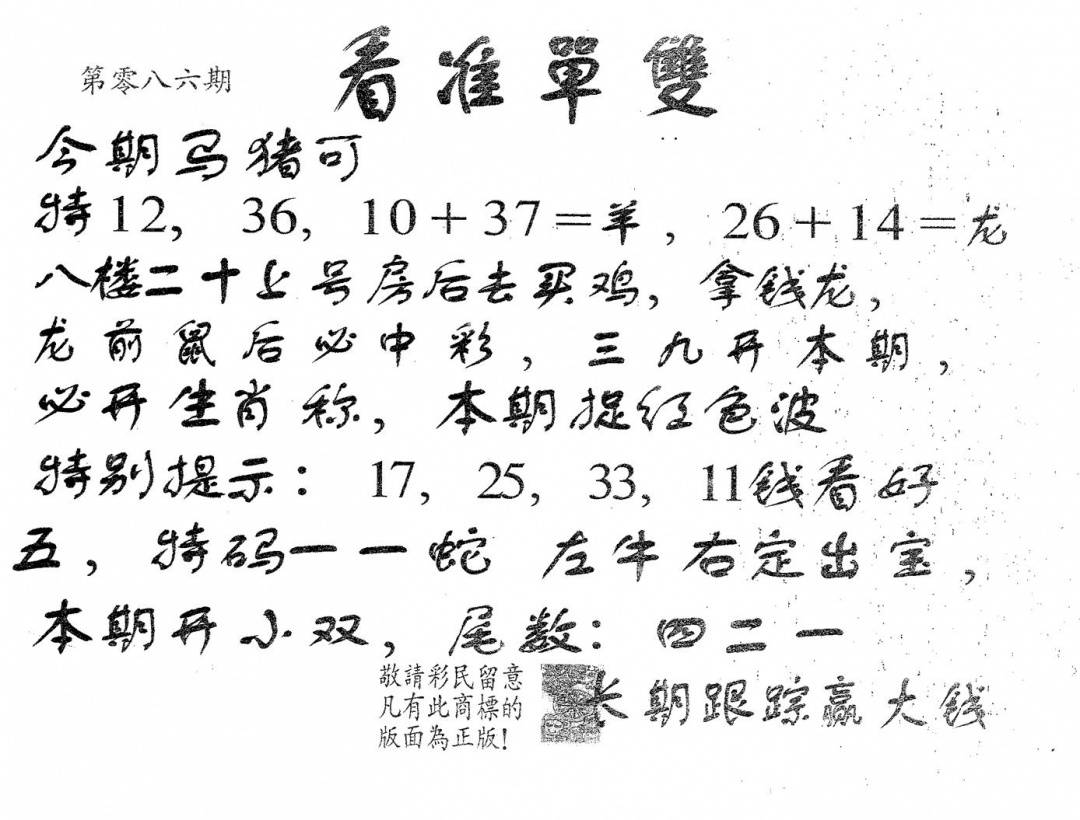 第零八六期
看准單雙
今期马猪可
特12, 36, 10+37=羊, 26+14=龙
八楼二十上号房后去买鸡, 拿钱龙,
龙前鼠后必中彩, 三九开本期,
必开生肖称, 本期捉红色波
特别提示: 17, 25, 33, 11钱看好
五, 特码一一蛇 左牛右定出宝,
本期开小双, 尾数: 四二一
敬請彩民留意
凡有此商標的
版面為正版!
长期跟踪赢大钱